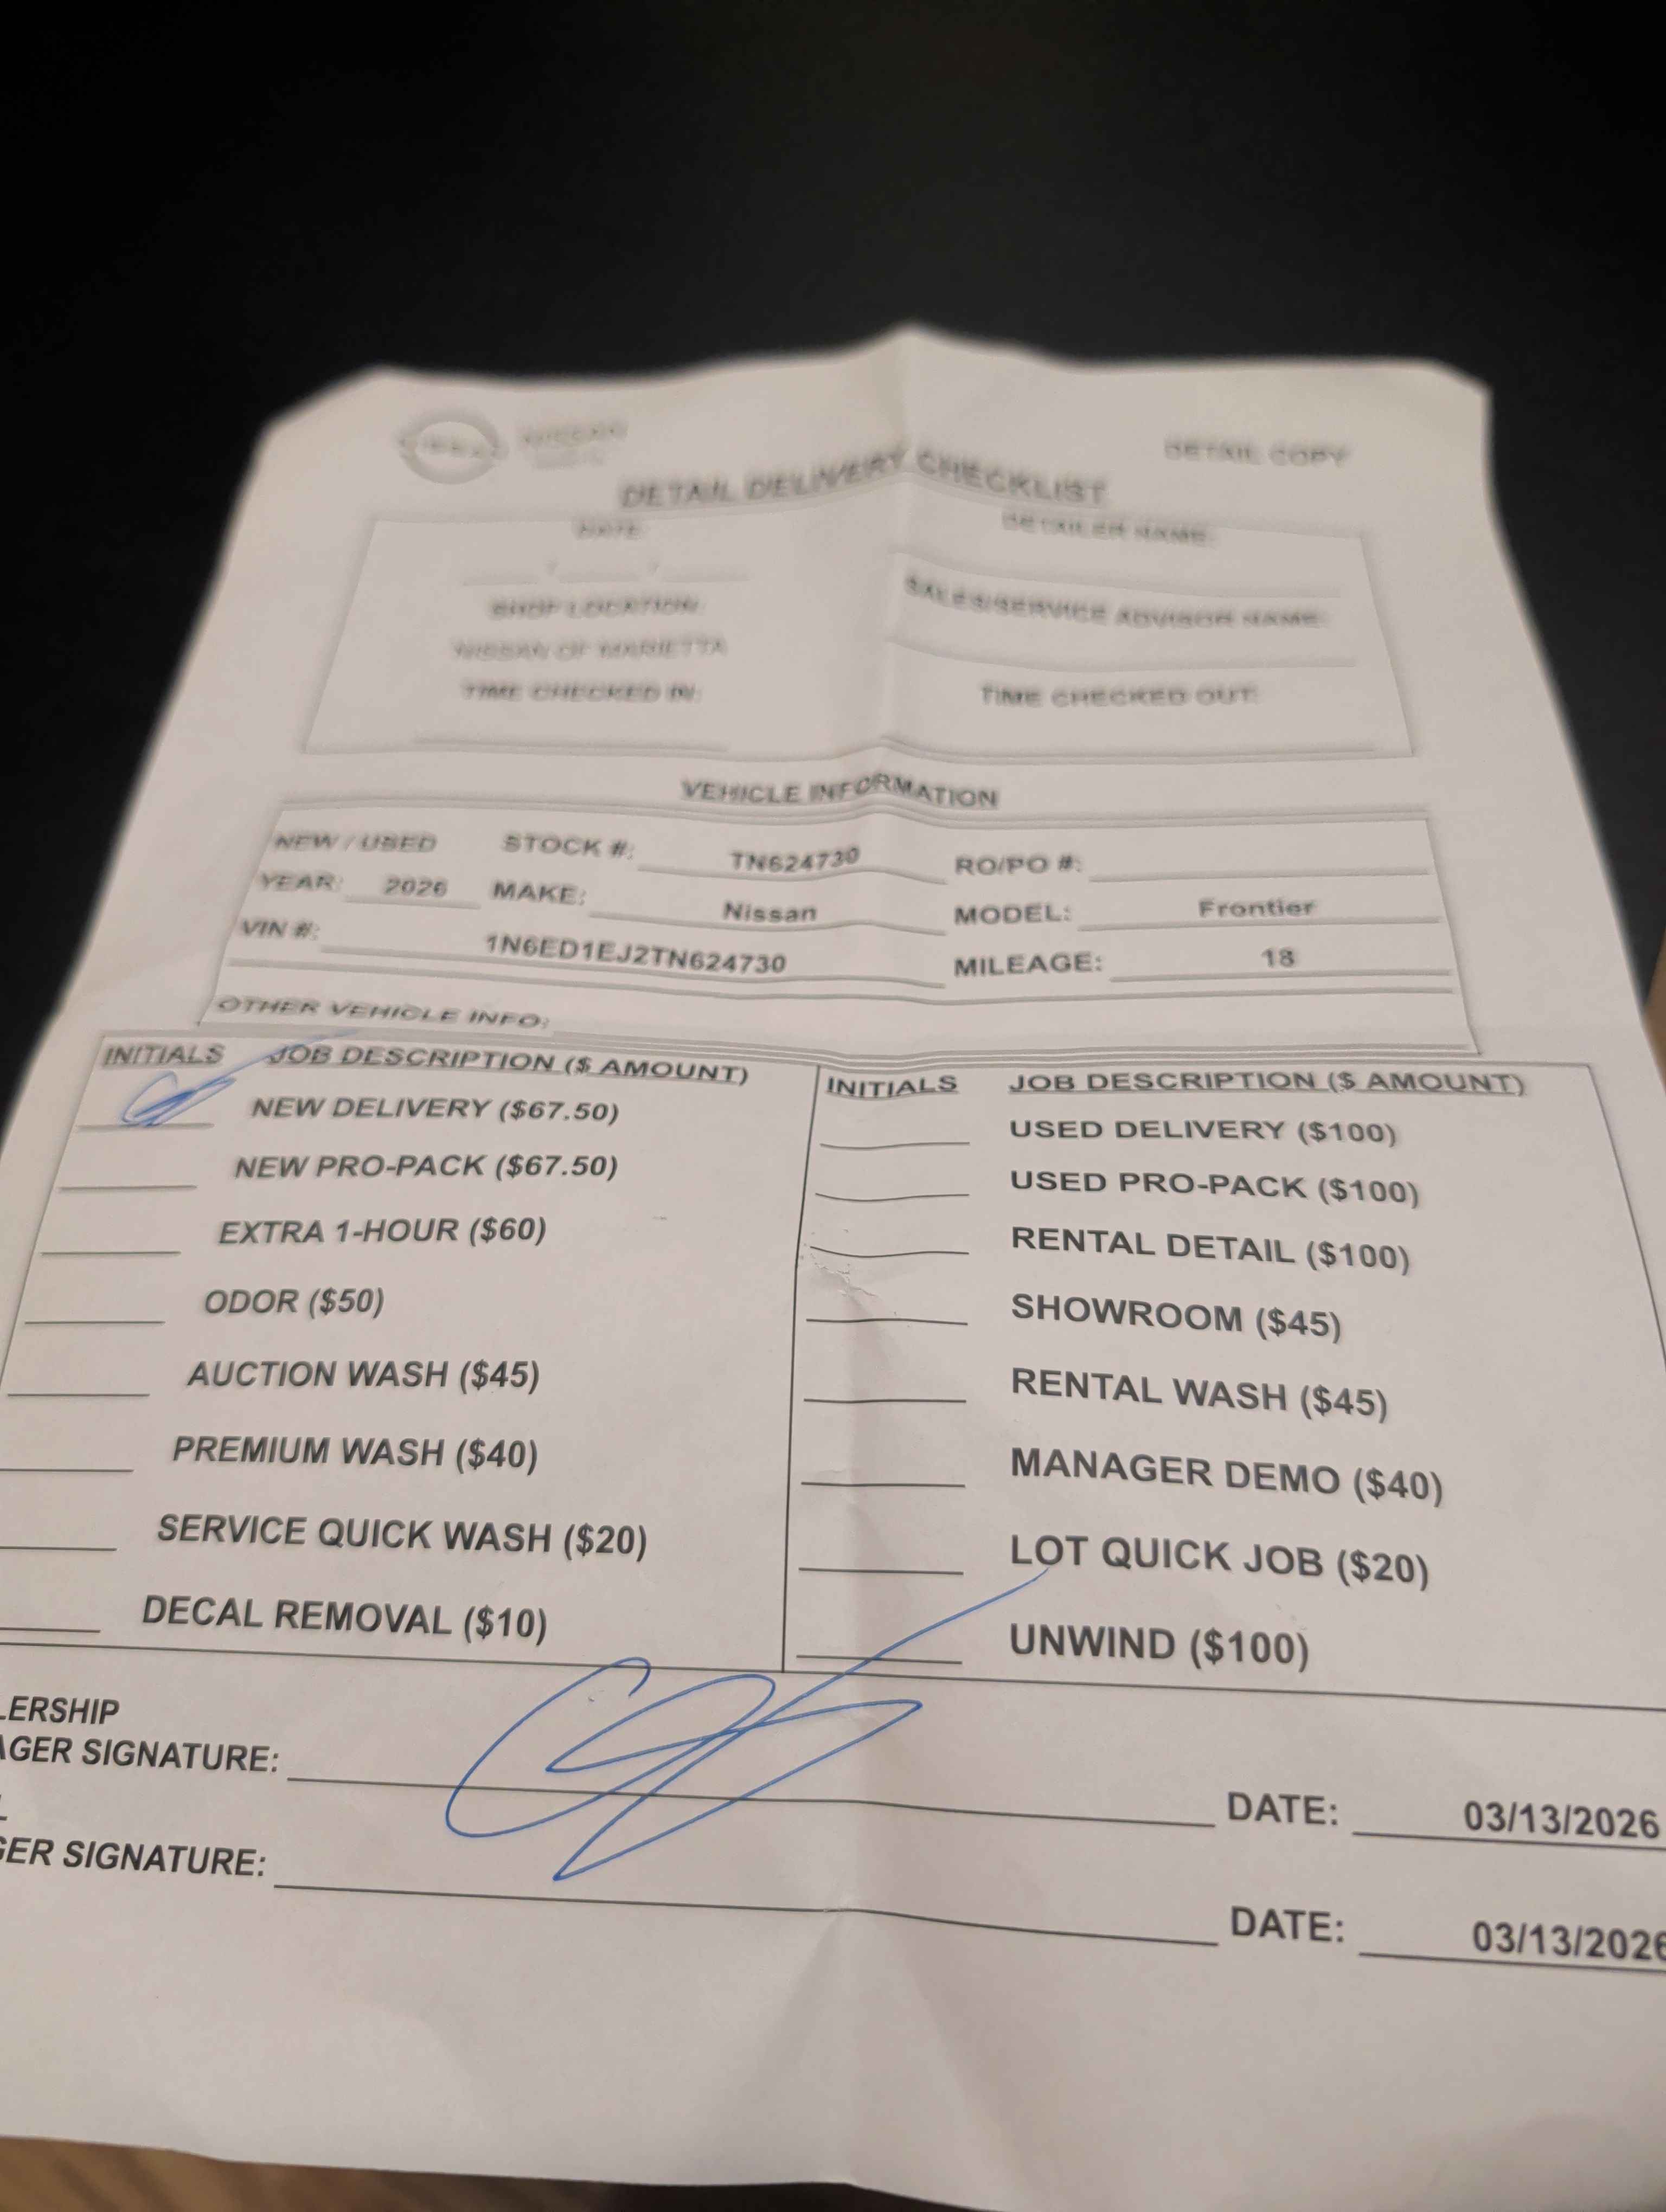 NISSAN
DETAIL COPY
DETAIL DELIVERY CHECKLIST
DATE:
DETAILER NAME:
/ /
SHOP LOCATION:
SALES/SERVICE ADVISOR NAME:
NISSAN OF MARIETTA
TIME CHECKED IN:
TIME CHECKED OUT:
VEHICLE INFORMATION
NEW / USED STOCK #: TN624730 RO/PO #:
YEAR: 2026 MAKE: Nissan MODEL: Frontier
VIN #: 1N6ED1EJ2TN624730 MILEAGE: 18
OTHER VEHICLE INFO:
INITIALS JOB DESCRIPTION ($ AMOUNT)
NEW DELIVERY ($67.50)
NEW PRO-PACK ($67.50)
EXTRA 1-HOUR ($60)
ODOR ($50)
AUCTION WASH ($45)
PREMIUM WASH ($40)
SERVICE QUICK WASH ($20)
DECAL REMOVAL ($10)
INITIALS JOB DESCRIPTION ($ AMOUNT)
USED DELIVERY ($100)
USED PRO-PACK ($100)
RENTAL DETAIL ($100)
SHOWROOM ($45)
RENTAL WASH ($45)
MANAGER DEMO ($40)
LOT QUICK JOB ($20)
UNWIND ($100)
LERSHIP
AGER SIGNATURE: DATE: 03/13/2026
L
GER SIGNATURE: DATE: 03/13/2026